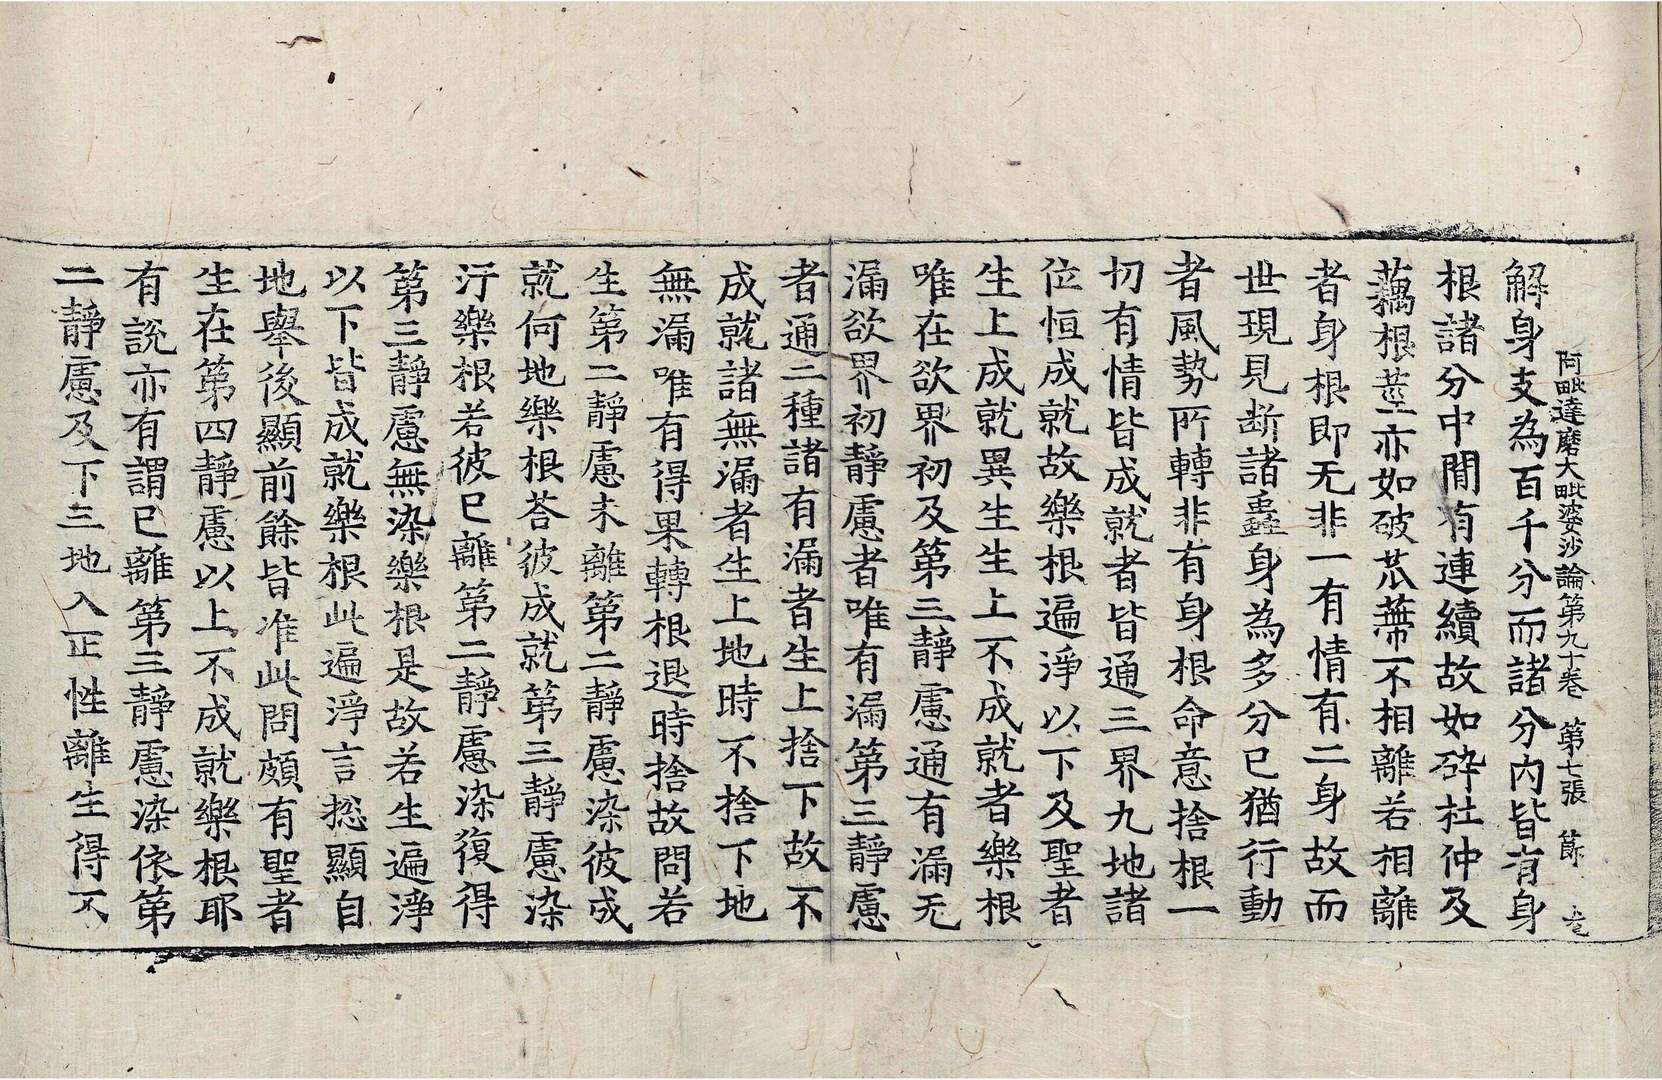 阿毗達磨大毗婆沙論第九十卷 第七張 節
解身支為百千分而諸分內皆有身
根諸分中間有連續故如碎杜仲及
藕根莖亦如破苽蔕不相離若相離
者身根即无非一有情有二身故而
世現見斷諸蟲身為多分已猶行動
者風勢所轉非有身根命意捨根一
切有情皆成就者皆通三界九地諸
位恒成就故樂根遍淨以下及聖者
生上成就異生生上不成就者樂根
唯在欲界初及第三靜慮通有漏无
漏欲界初靜慮者唯有漏第三靜慮
者通二種諸有漏者生上捨下故不
成就諸無漏者生上地時不捨下地
無漏唯有得果轉根退時捨故問若
生第二靜慮未離第二靜慮染彼成
就何地樂根荅彼成就第三靜慮染
汙樂根若彼已離第二靜慮染復得
第三靜慮無染樂根是故若生遍淨
以下皆成就樂根此遍淨言揔顯自
地舉後顯前餘皆准此問頗有聖者
生在第四靜慮以上不成就樂根耶
有說亦有謂已離第三靜慮染依第
二靜慮及下三地入正性離生得不